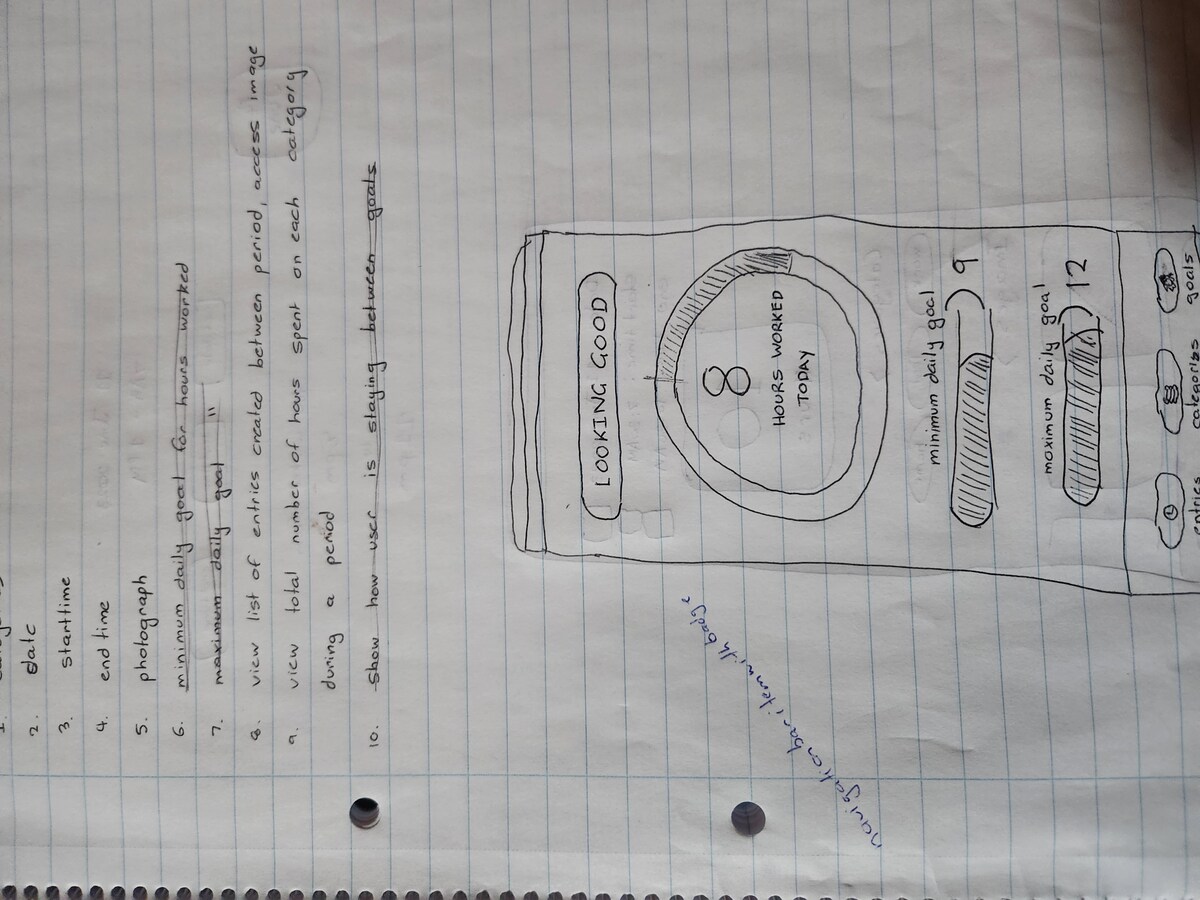 1.
2. date
3. starttime
4. end time
5. photograph
6. minimum daily goal for hours worked
7. maximum daily goal "
8. view list of entries created between period, access image
9. view total number of hours spent on each category
during a period
10. show how user is staying between goals
LOOKING GOOD
8
HOURS WORKED
TODAY
minimum daily goal
9
maximum daily goal
12
entries categories goals
navigation bar item with badge